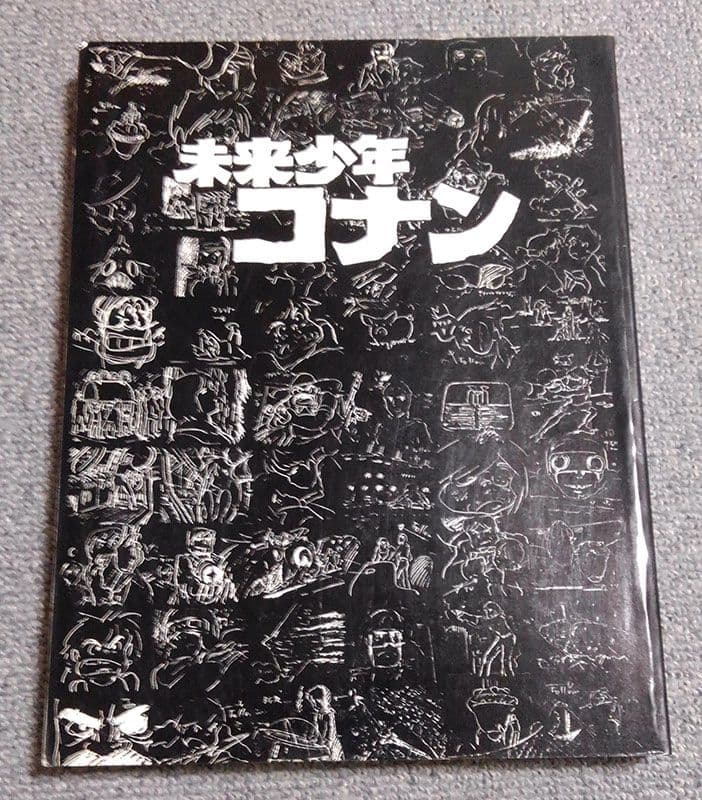 未来少年
コナン